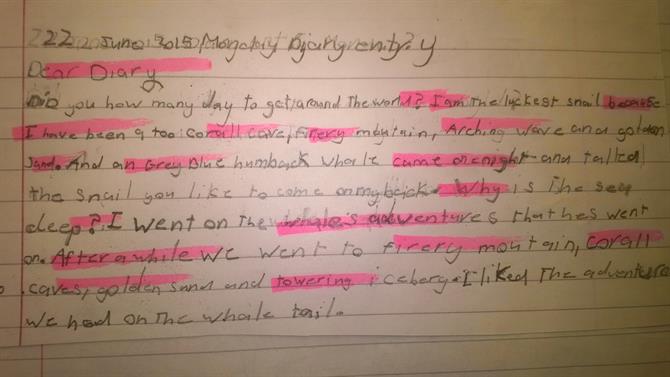 22 June 2015 Monday
Dear Diary
Did you how many day to get around the world? I am the luckest snail because
I have been a too: corall cave, firery mountain, Arching wave and golden
sand. And an Grey Blue humback whale came onenight and talled
the snail you like to come onmyback. Why is the sea
deep? I went on the whale's adventures that hes went
on. After awhile we went to firery mountain, corall
caves, golden sand and towering iceberg. I liked The adventure
we had on The whale tail.